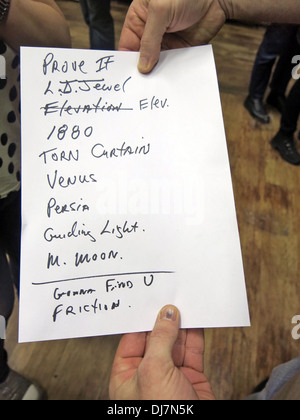 PROVE IT
L.J. Jewel
Elevation Elev.
1880
TORN CURTAIN
VENUS
PERSIA
Guiding Light.
M. MOON.
GONNA FIND U
FRICTION.
alamy
Image ID: DJ7N5K
www.alamy.com